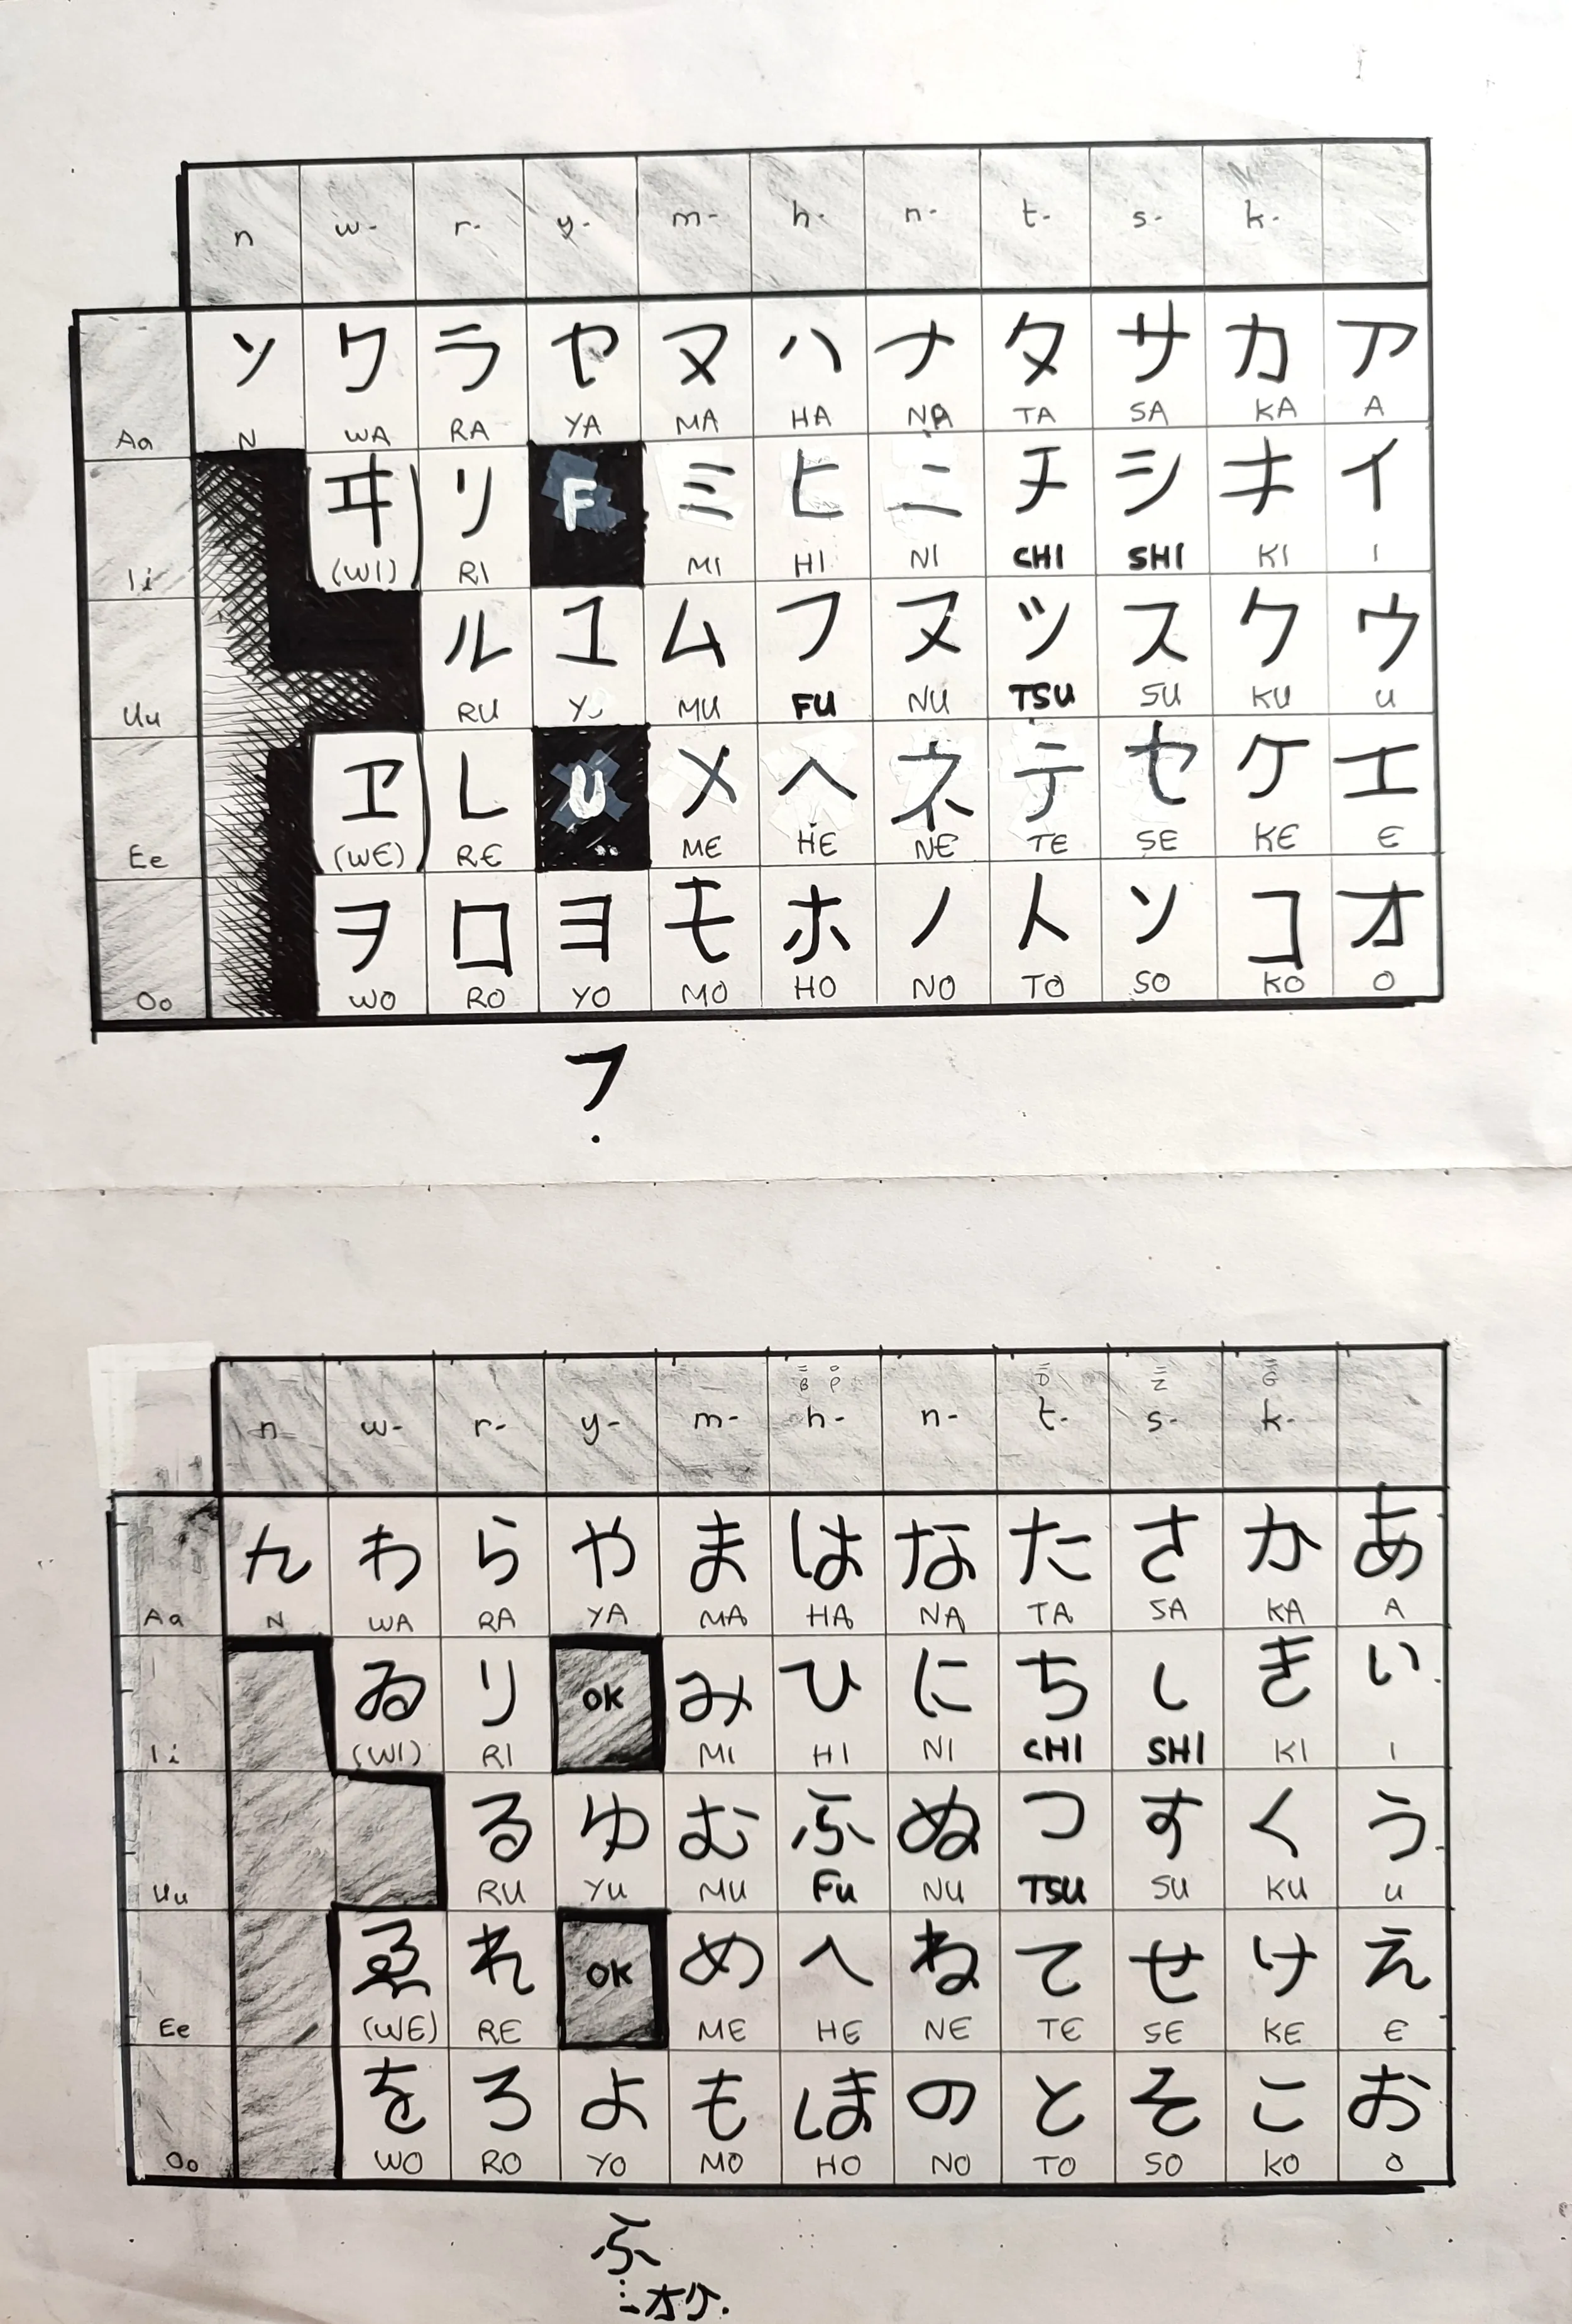 n w- r- y- m- h- n- t- s- k-
ン ワ ラ ヤ ヌ ハ ナ タ サ カ ア
Aa N WA RA YA MA HA NA TA SA KA A
ヰ リ F ミ ヒ ニ チ シ キ イ
Ii (WI) RI MI HI NI CHI SHI KI I
ル ユ ム フ ヌ ツ ス ク ウ
Uu RU YU MU FU NU TSU SU KU U
ヱ レ U メ ヘ ネ テ セ ケ エ
Ee (WE) RE ME HE NE TE SE KE E
ヲ ロ ヨ モ ホ ノ ト ソ コ オ
Oo WO RO YO MO HO NO TO SO KO O
フ
B P D Z G
n w- r- y- m- h- n- t- s- k-
ん わ ら や ま は な た さ か あ
Aa N WA RA YA MA HA NA TA SA KA A
ゐ り OK み ひ に ち し き い
Ii (WI) RI MI HI NI CHI SHI KI I
る ゆ む ふ ぬ つ す く う
Uu RU YU MU FU NU TSU SU KU U
ゑ れ OK め へ ね て せ け え
Ee (WE) RE ME HE NE TE SE KE E
を ろ よ も ほ の と そ こ お
Oo WO RO YO MO HO NO TO SO KO O
ふ
オケ.